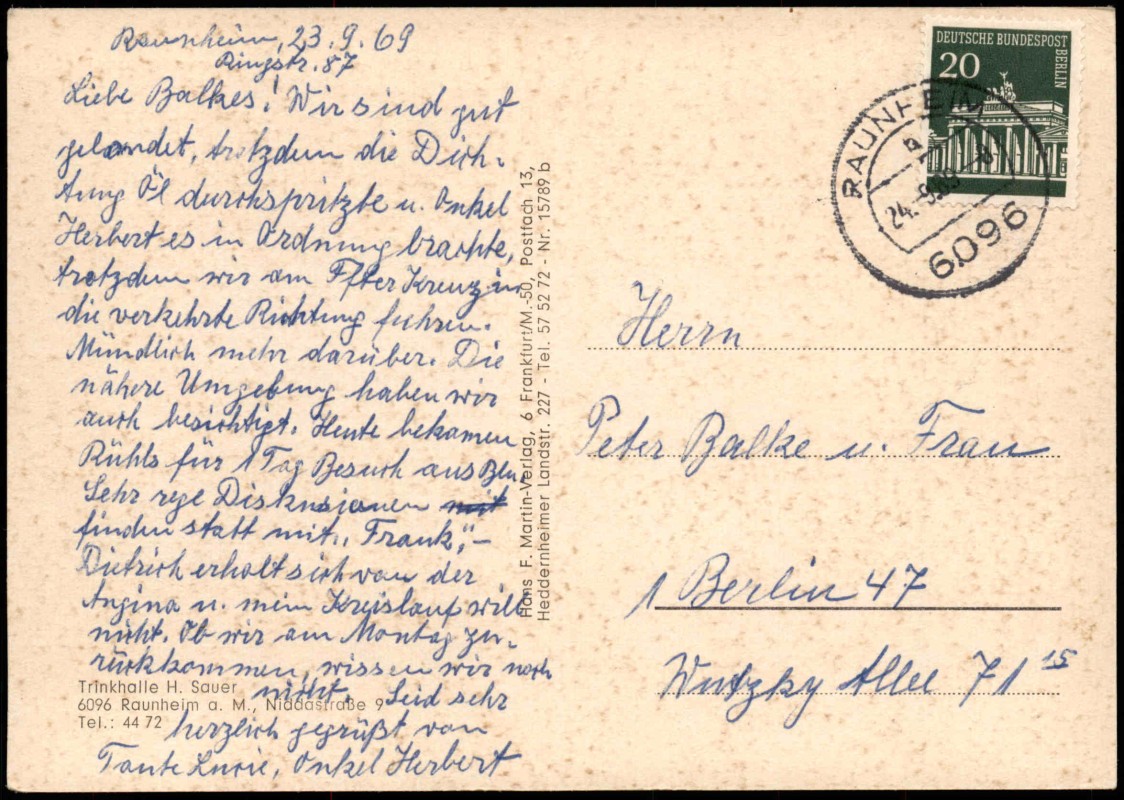 Raunheim, 23.9.69
Ringstr. 87
Liebe Balkes! Wir sind gut
gelandet, trotzdem die Dich-
tung Öl durchspritzte u. Onkel
Herbert es in Ordnung brachte,
trotzdem wir am Ffter Kreuz in
die verkehrte Richtung fuhren.
Mündlich mehr darüber. Die
nähere Umgebung haben wir
auch besichtigt. Heute bekamen
Rühls für 1 Tag Besuch aus Bln.
Sehr rege Diskusionen mit
finden statt mit „Frank“,-
Dietrich erholt sich von der
Angina u. mein Kreislauf will
nicht. Ob wir am Montag zu-
rückkommen, wissen wir noch
nicht. Seid sehr
herzlich gegrüßt von
Tante Lucie, Onkel Herbert
Trinkhalle H. Sauer
6096 Raunheim a. M., Niddastraße 9
Tel.: 44 72
Hans F. Martin-Verlag, 6 Frankfurt/M.-50, Postfach 13,
Heddernheimer Landstr. 227 - Tel. 57 52 72 - Nr. 15789 b
DEUTSCHE BUNDESPOST
BERLIN
20
RAUNHEIM
a
24.-9.69-8
6096
Herrn
Peter Balke u. Frau
1 Berlin 47
Wutzky Allee 71 15